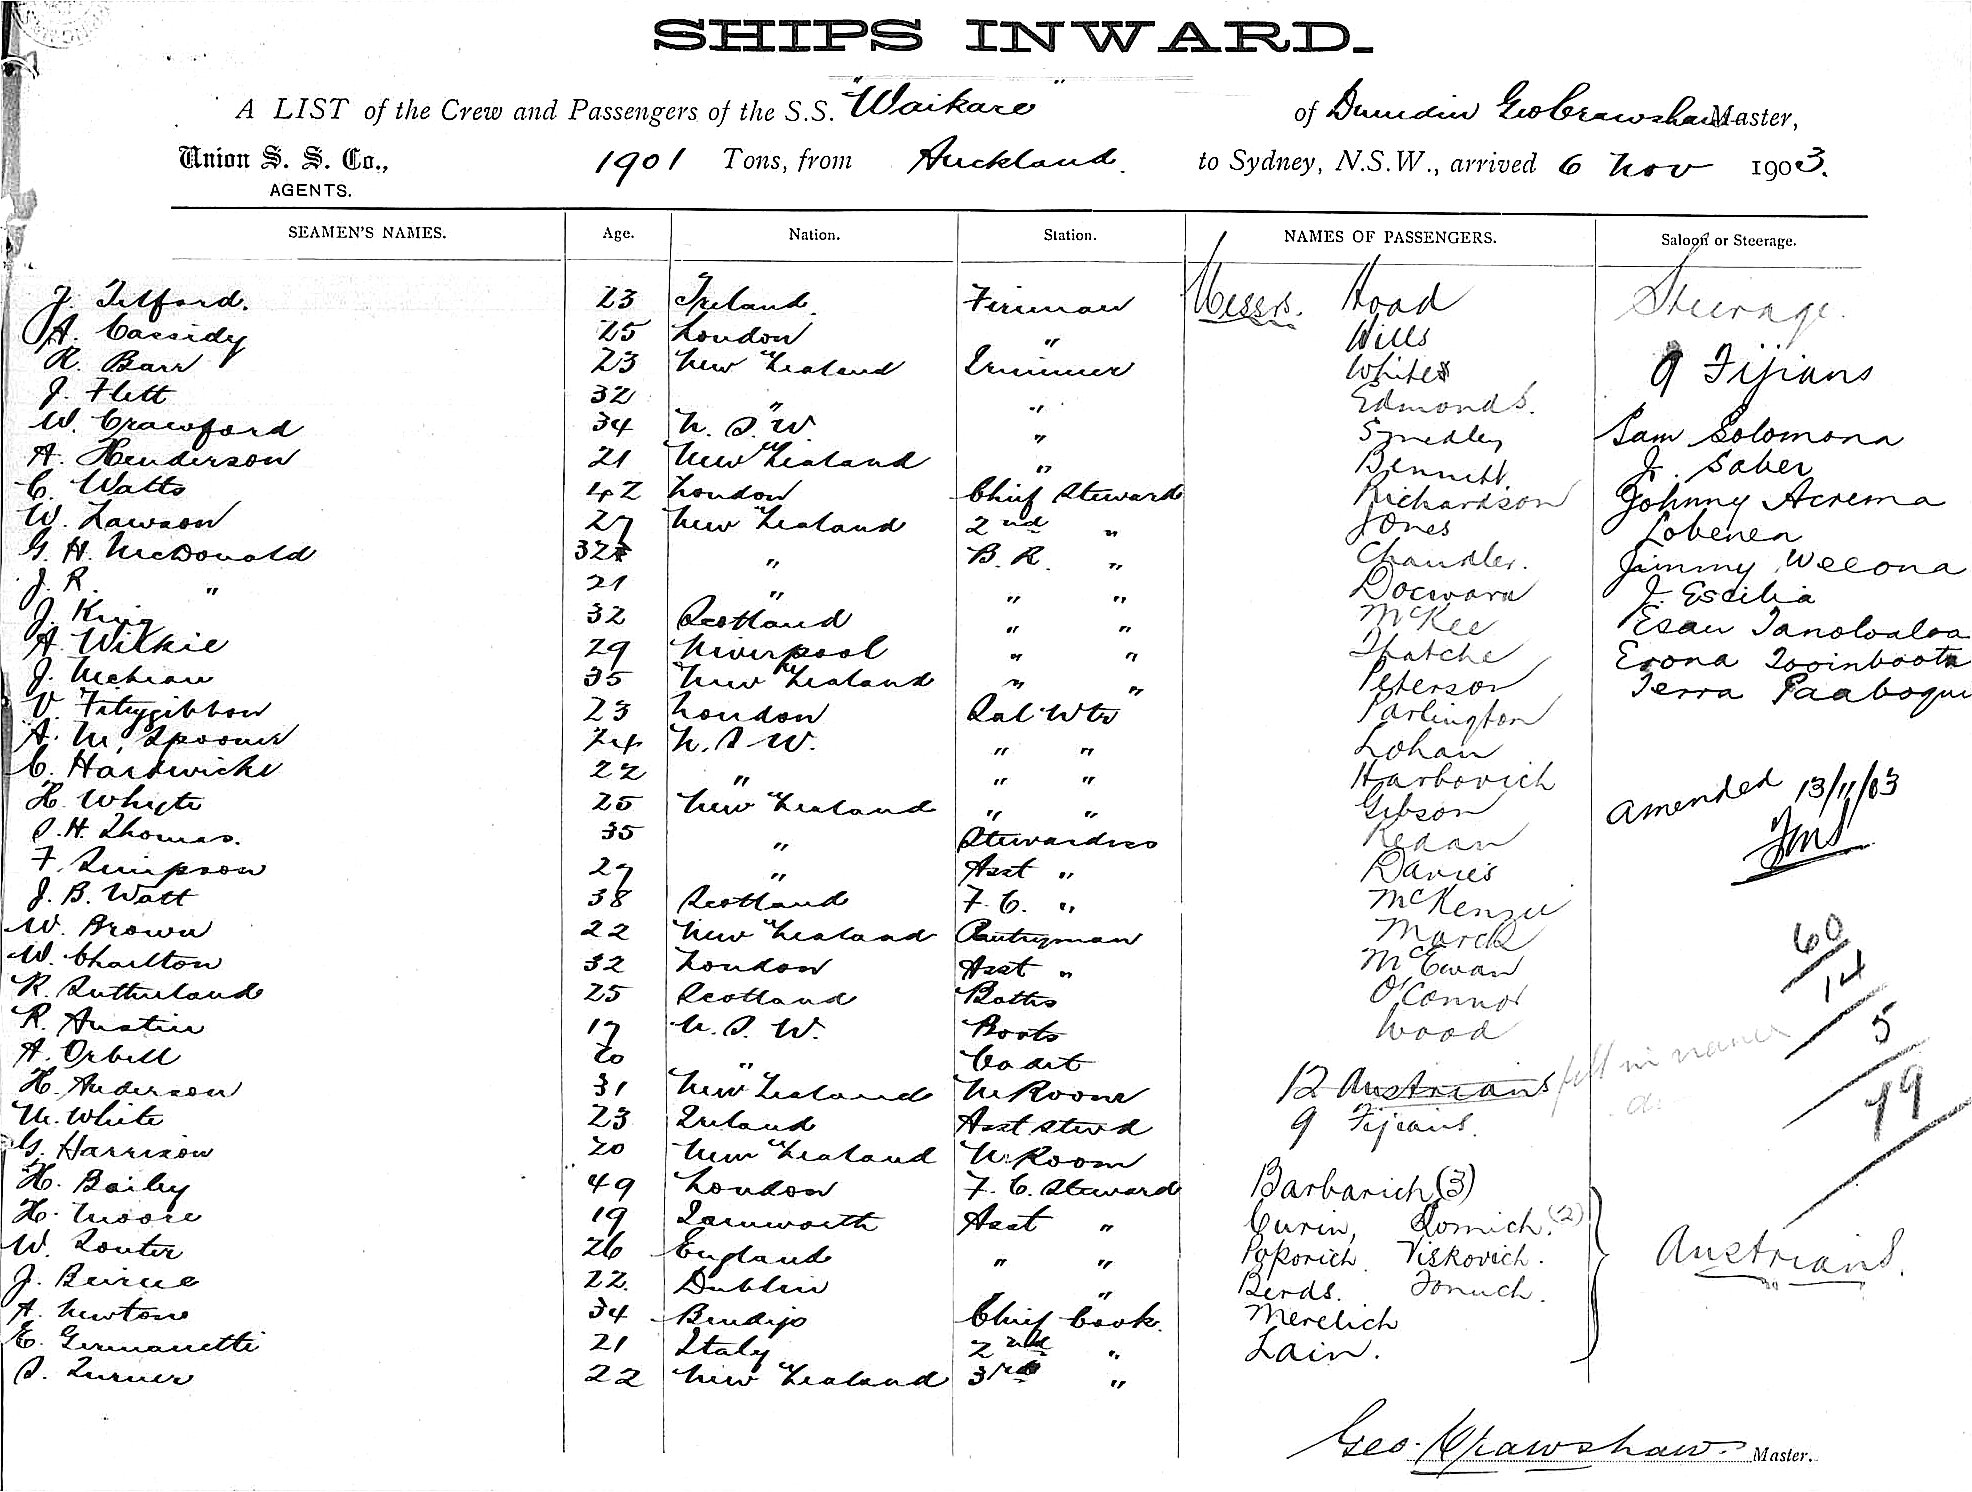 SHIPS INWARD.
A LIST of the Crew and Passengers of the S.S. "Waikare" of Dunedin Geo Crawshaw Master,
Union S. S. Co., 1901 Tons, from Auckland. to Sydney, N.S.W., arrived 6 Nov 1903.
AGENTS.
SEAMEN'S NAMES. Age. Nation. Station. NAMES OF PASSENGERS. Saloon or Steerage.
J. Telford. 23 Ireland. Fireman Messrs. Hoad Steerage.
A. Cassidy 25 London " Wills
R. Barr 23 New Zealand Trimmer White 9 Fijians
J. Flett 32 " " Edmonds.
W. Crawford 34 N. S. W " Smedley Sam Solomona
A. Henderson 21 New Zealand " Bennett J. Saber
C. Watts 42 London Chief Steward Richardson Johnny Acrema
W. Lawson 27 New Zealand 2nd " Jones Lobenen
G. H. McDonald 32 " B. R. " Chandler. Jimmy Weeona
J. R. " 21 " " " Docwara J. Escilia
J. King 32 Scotland " " McKee Esau
A. Wilkie 29 Liverpool " " Thatche Erona
J. McLean 35 New Zealand " " Peterson Terra
V. Fitzgibbon 23 London Sal Wtr Parlington
A. M. Spooner 24 N. S W. " " Lohan
C. Hardwicke 22 " " " Harbovich
H. Whyte 25 New Zealand " " Gibson Amended 13/11/03
S. H. Thomas. 35 " Stewardess
F. Simpson 27 " Asst " Davies
J. B. Watt 38 Scotland F. C. " McKenzie
W. Brown 22 New Zealand Pantryman
W. Charlton 32 London Asst " McEwan 60
R. Sutherland 25 Scotland Baths O'Connor 14
R. Austin 17 N. S. W. Boots Wood 5
A. Orbell 20 " Cadet
H. Anderson 31 New Zealand M Room 12 Austrians fill in names 79
M. White 23 Ireland Asst Stwd 9 Fijians.
G. Harrison 20 New Zealand M. Room
H. Bailey 49 London F. C. Steward Barbarich (3)
H. Moore 19 Tamworth Asst " Curin, (2)
W. Souter 26 England " " Poporich Viskovich. Austrians.
J. Beirne 22. Dublin " Berds.
A. Newton 34 Bendigo Chief Cook. Merelich
E. Germanetti 21 Italy 2nd " Lain.
S. Turner 22 New Zealand 3rd "
Geo. Crawshaw. Master.